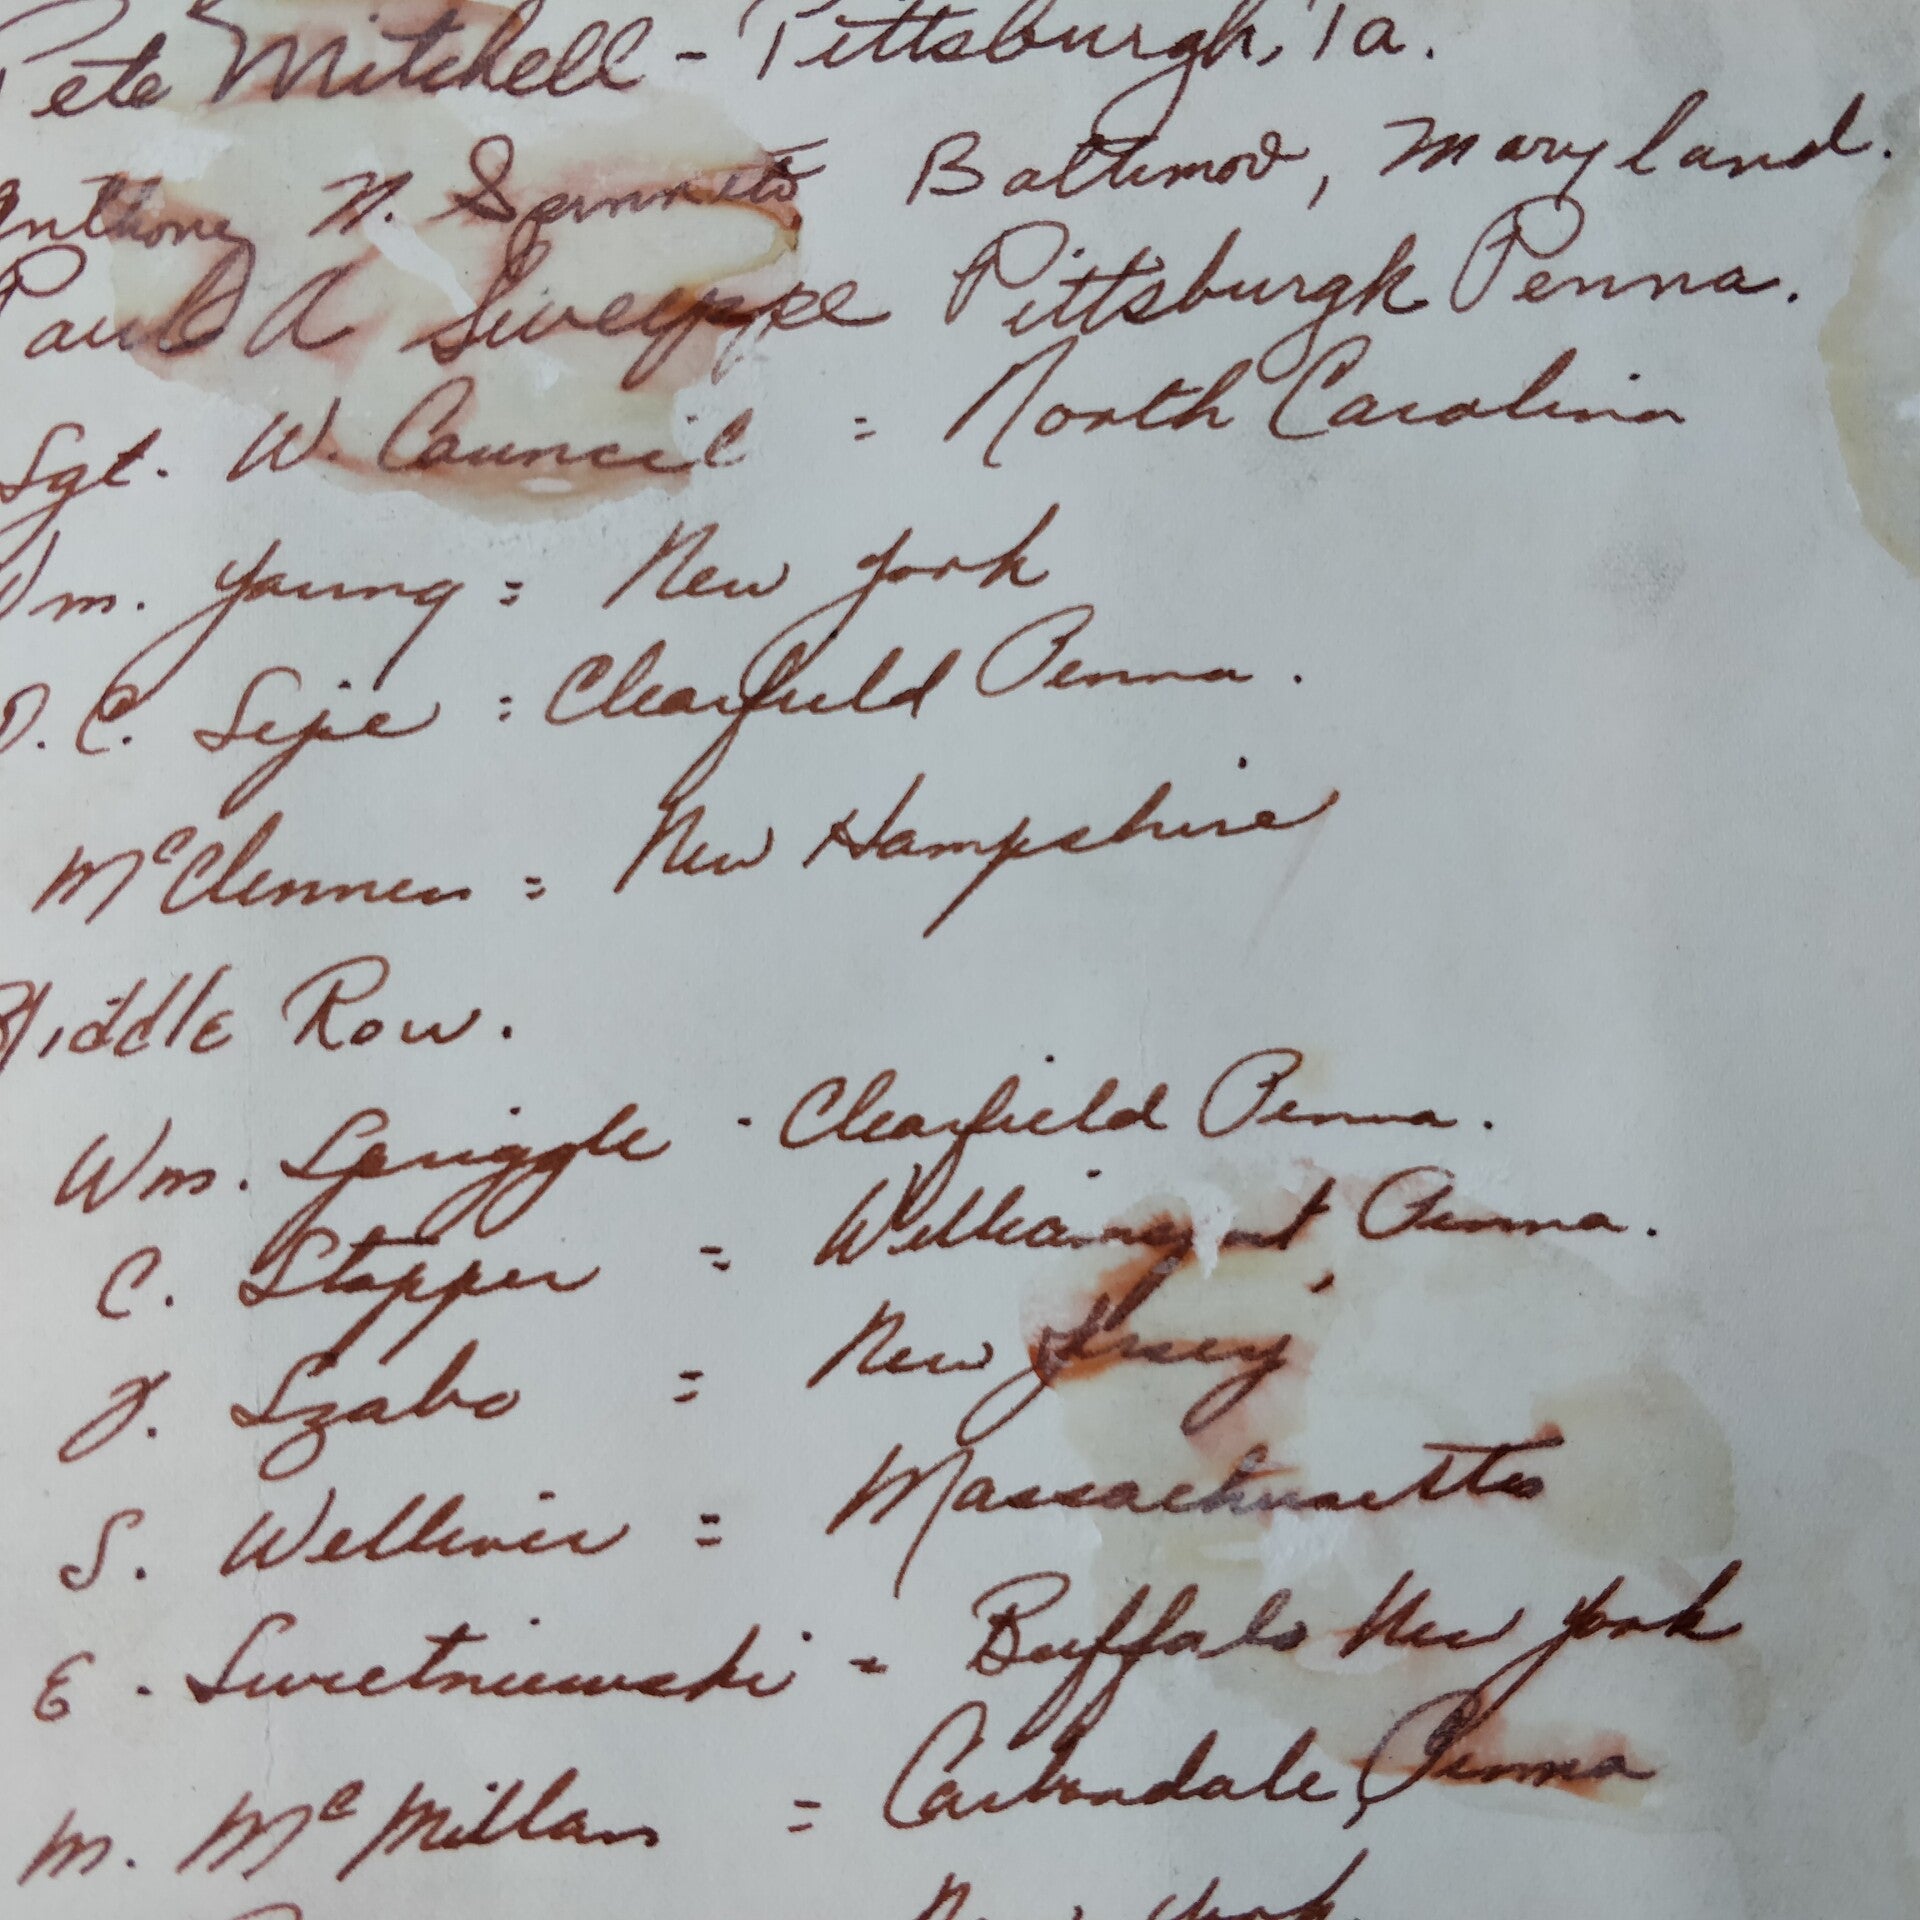 Pete Mitchell - Pittsburgh, Pa.
Anthony N. Baltimore, Maryland.
Paul A Sweyppe Pittsburgh Penna.
Sgt. W. Council = North Carolina
Wm. Young = New York
D. C. : Clearfield Penna.
McClennen = New Hampshire
Middle Row.
Wm. Spriggle - Clearfield Penna.
C. Stopper = Penna.
Szabo = New Jersey
S. Welliver = Massachusetts
E. Swietniewski = Buffalo New York
M. McMillan = Carbondale, Penna
New York